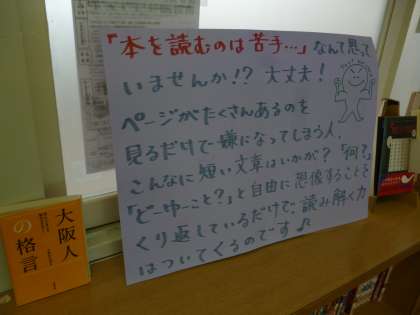 「本を読むのは苦手…」なんて思って
いませんか!? 大丈夫!
ページがたくさんあるのを
見るだけで嫌になってしまう人、
こんなに短い文章はいかが?「何?」
「どーゆーこと?」と自由に想像することを
くり返しているだけで読み解く力
はついてくるのです♪
大阪人
の格言